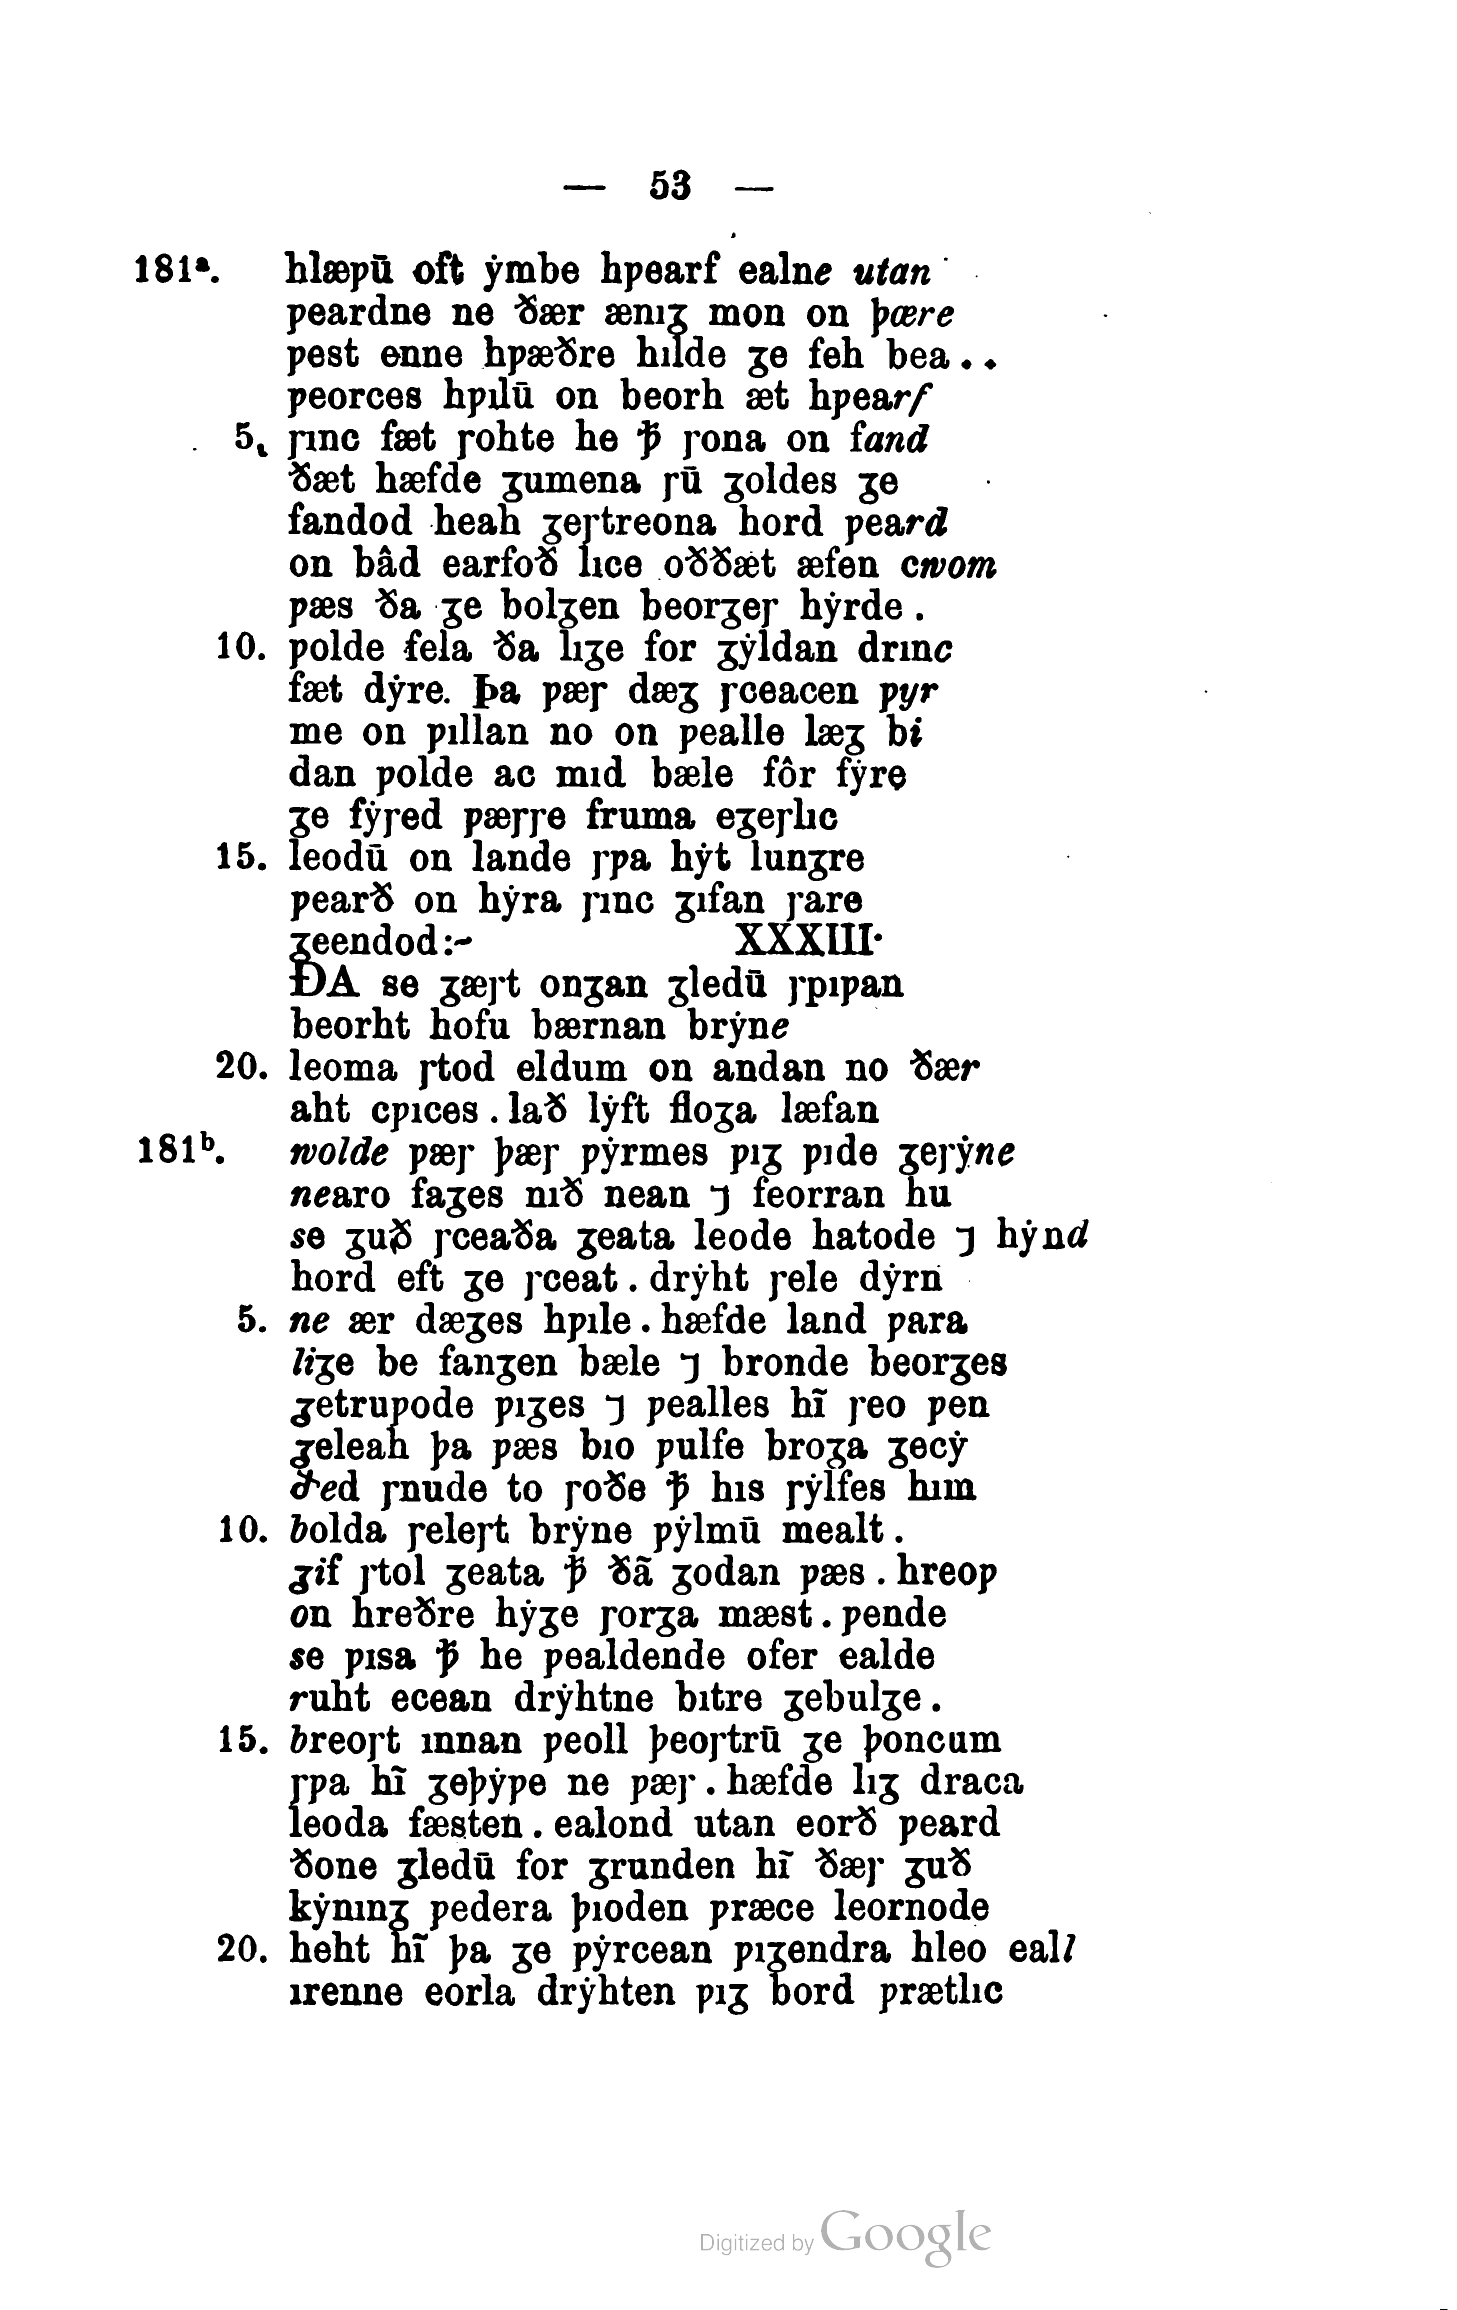 — 53 —
181ª. hlæpū oft ẏmbe hpearf ealne utan
peardne ne ðær ænıʒ mon on þære
pest enne hpæðre hılde ʒe feh bea . .
peorces hpılū on beorh æt hpearf
5. ꞅınc fæt ꞅohte he ꝥ ꞅona on fand
ðæt hæfde ʒumena ꞅū ʒoldes ʒe
fandod heah ʒeꞅtreona hord peard
on bâd earfoð lıce oððæt æfen cwom
pæs ða ʒe bolʒen beorʒeꞅ hẏrde .
10. polde fela ða lıʒe for ʒẏldan drınc
fæt dẏre. Þa pæꞅ dæʒ ꞅceacen pyr
me on pıllan no on pealle læʒ bi
dan polde ac mıd bæle fôr fẏre
ʒe fẏꞅed pæꞅꞅe fruma eʒeꞅlıc
15. leodū on lande ꞅpa hẏt lunʒre
pearð on hẏra ꞅınc ʒıfan ꞅare
ʒeendod :~ XXXIII·
ÐA se ʒæꞅt onʒan ʒledū ꞅpıpan
beorht hofu bærnan brẏne
20. leoma ꞅtod eldum on andan no ðær
aht cpıces . lað lẏft floʒa læfan
181ᵇ. wolde pæꞅ þæꞅ pẏrmes pıʒ pıde ʒeꞅẏne
nearo faʒes nıð nean ⁊ feorran hu
se ʒuð ꞅceaða ʒeata leode hatode ⁊ hẏnd
hord eft ʒe ꞅceat . drẏht ꞅele dẏrn
5. ne ær dæʒes hpıle . hæfde land para
liʒe be fanʒen bæle ⁊ bronde beorʒes
ʒetrupode pıʒes ⁊ pealles hī ꞅeo pen
ʒeleah þa pæs bıo pulfe broʒa ʒecẏ
ðed ꞅnude to ꞅoðe ꝥ hıs ꞅẏlfes hım
10. bolda ꞅeleꞅt brẏne pẏlmū mealt .
ʒif ꞅtol ʒeata ꝥ ðā ʒodan pæs . hreop
on hreðre hẏʒe ꞅorʒa mæst . pende
se pısa ꝥ he pealdende ofer ealde
ruht ecean drẏhtne bıtre ʒebulʒe .
15. breoꞅt ınnan peoll þeoꞅtrū ʒe þoncum
ꞅpa hī ʒeþẏpe ne pæꞅ . hæfde lıʒ draca
leoda fæsten . ealond utan eorð peard
ðone ʒledū for ʒrunden hī ðæꞅ ʒuð
kẏnınʒ pedera þıoden præce leornode
20. heht hī þa ʒe pẏrcean pıʒendra hleo eall
ırenne eorla drẏhten pıʒ bord prætlıc
Digitized by Google